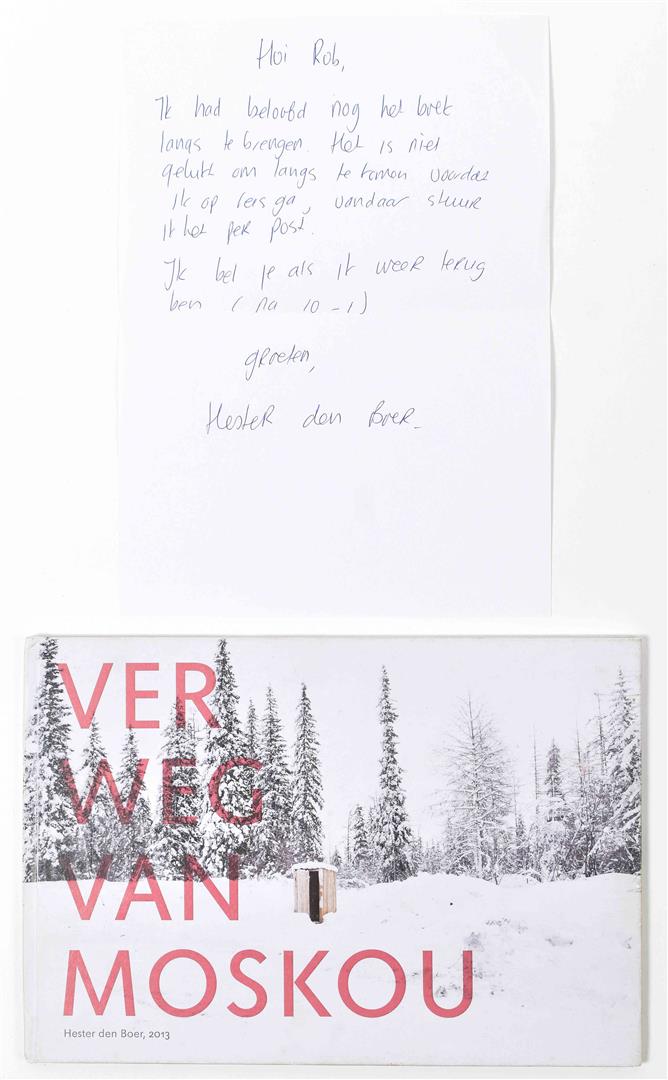 Hoi Rob,
Ik had beloofd nog het boek
langs te brengen. Het is niet
gelukt om langs te komen voordat
ik op reis ga, vandaar stuur
ik het per post.
Ik bel je als ik weer terug
ben (na 10-1)
groeten,
Hester den Boer.
VER
WEG
VAN
MOSKOU
Hester den Boer, 2013